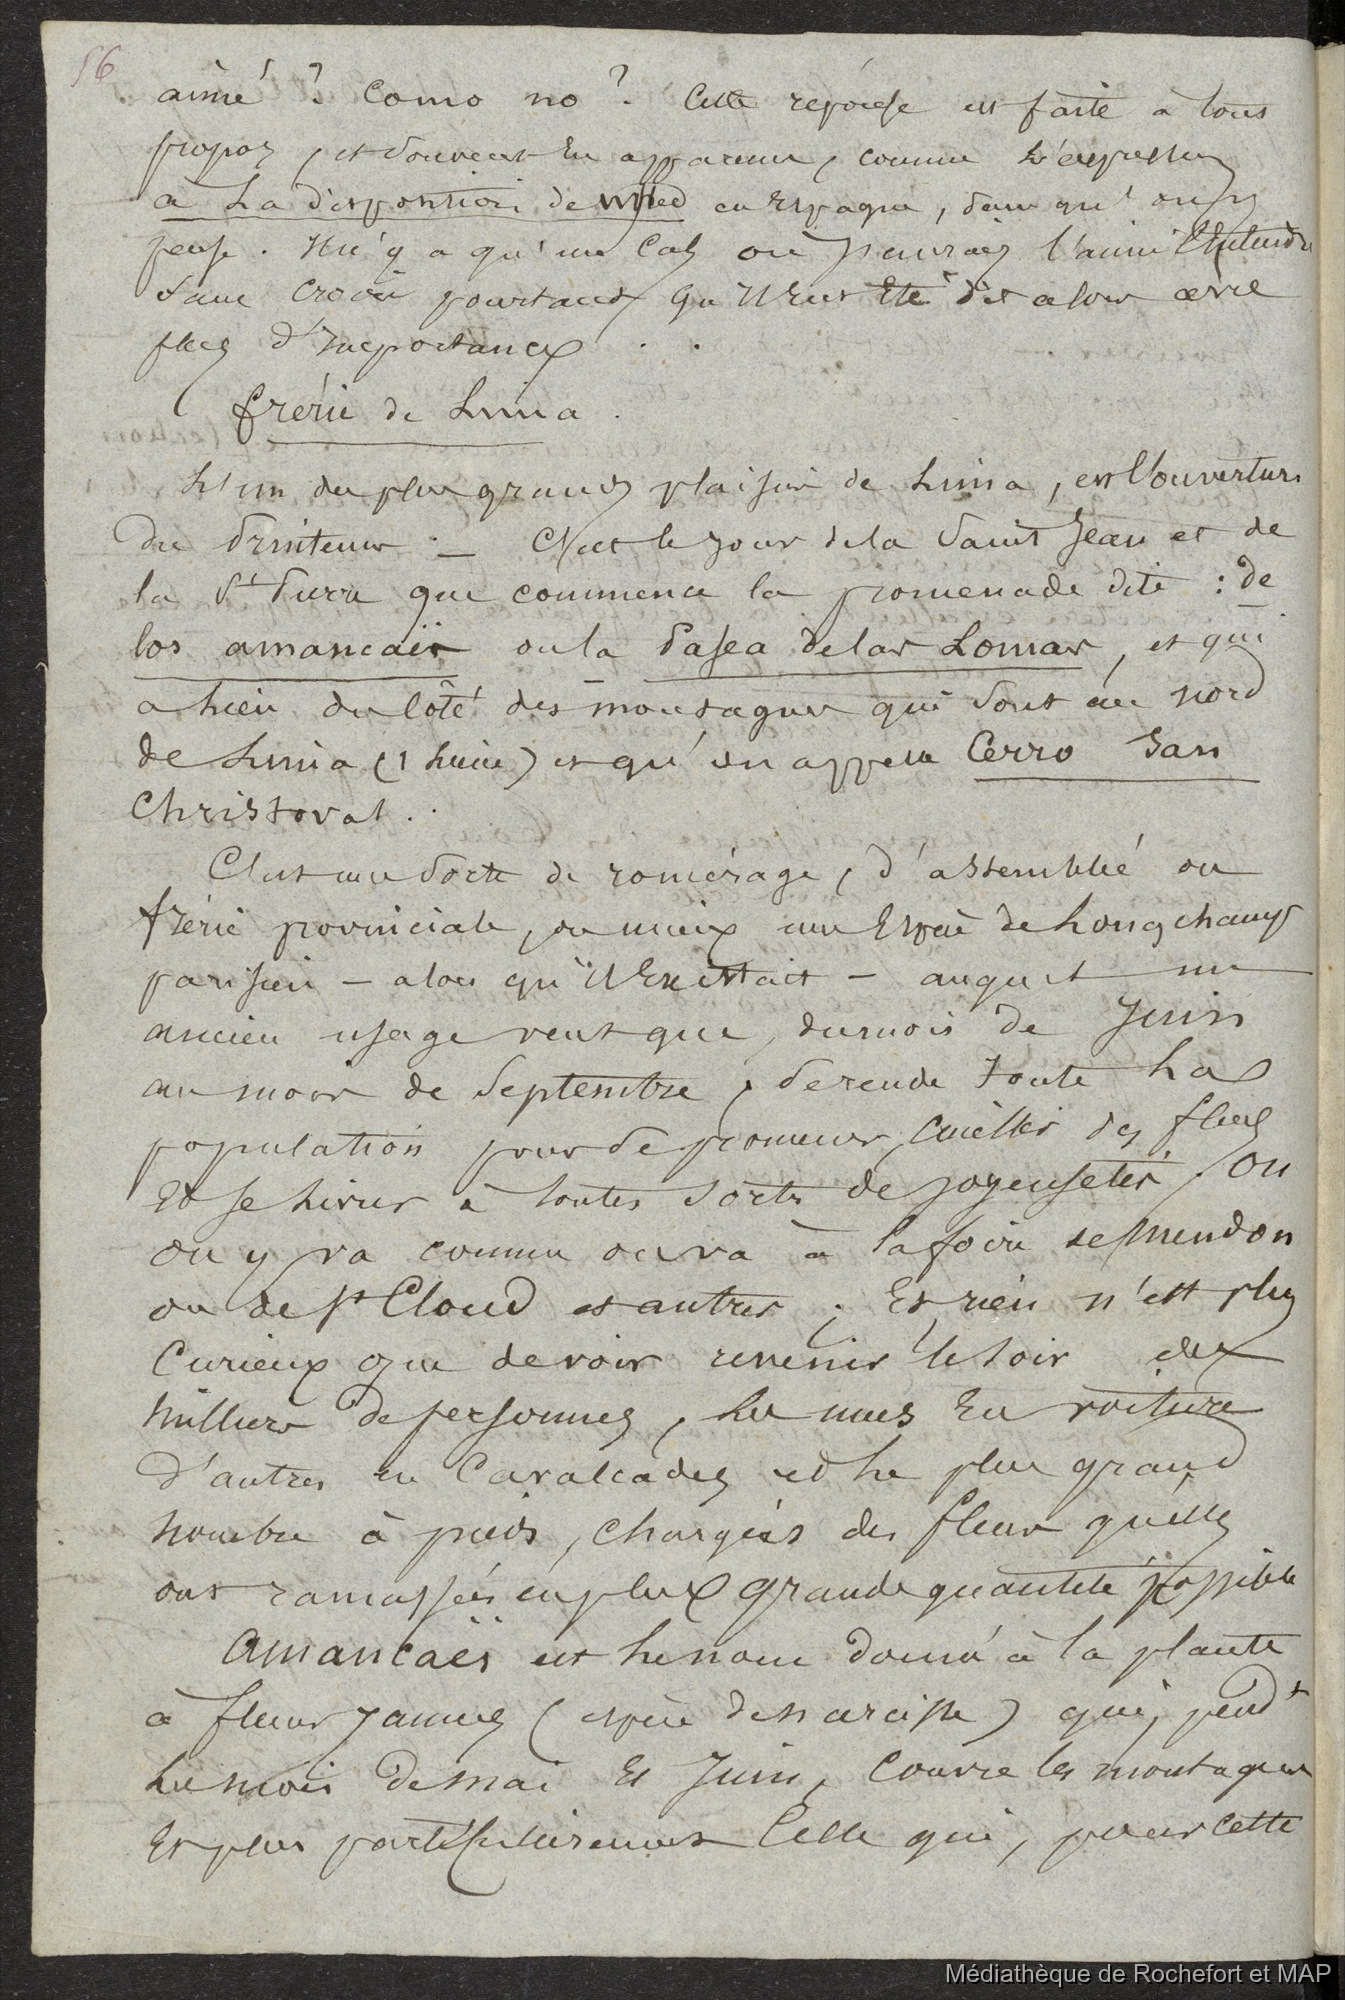 56
aimé ? Como no ? Cette reponse est faite à tous
propos, et souvent en apparence, comme l'expression
a La disposition de usted en Espagne, sans qu'on y
pense. Il n'y a qu'un cas où j'aurais l'aimé l'entendre
sans croire pourtant qu'il eut été dit alors avec
plus d'Importance . .
frérie de Lima .
L'un des plus grands plaisirs de Lima, est l'ouverture
du Printems . — C'est le jour de la Saint Jean et de
la St Pierre que commence la promenade dite : de
los amancaës ou la Pasea de las Lomas, et qui
a lieu du côté des montagnes qui sont au nord
de Lima (1 lieue) et qu'on appelle Cerro San
Christoval .
C'est une sorte de romérage, d'assemblée ou
frérie provinciale, ou mieux une Espèce de Longchamps
parisien — alors qu'il Existait — auquel un
ancien usage veut que, du mois de Juin
au mois de Septembre, se rende toute La
population pour se promener, cueillir des fleurs
Et se livrer à toutes sortes de joyeusetés, On
on y va comme on va à la foire de Meudon
ou de St Cloud et autres . Et rien n'est plus
Curieux que de voir revenir le soir des
milliers de personnes, les unes En voiture
d'autres en Cavalcades et le plus grand
nombre à pieds, chargées des fleurs qu'elles
ont ramassées en plus grande quantité possible
Amancaës est le nom donné à la plante
à fleurs jaunes (espèce de narcisse) qui, pendt
les mois de mai Et Juin, couvre les montagnes
Et plus particulièrement Celle qui, pour cette
Médiathèque de Rochefort et MAP